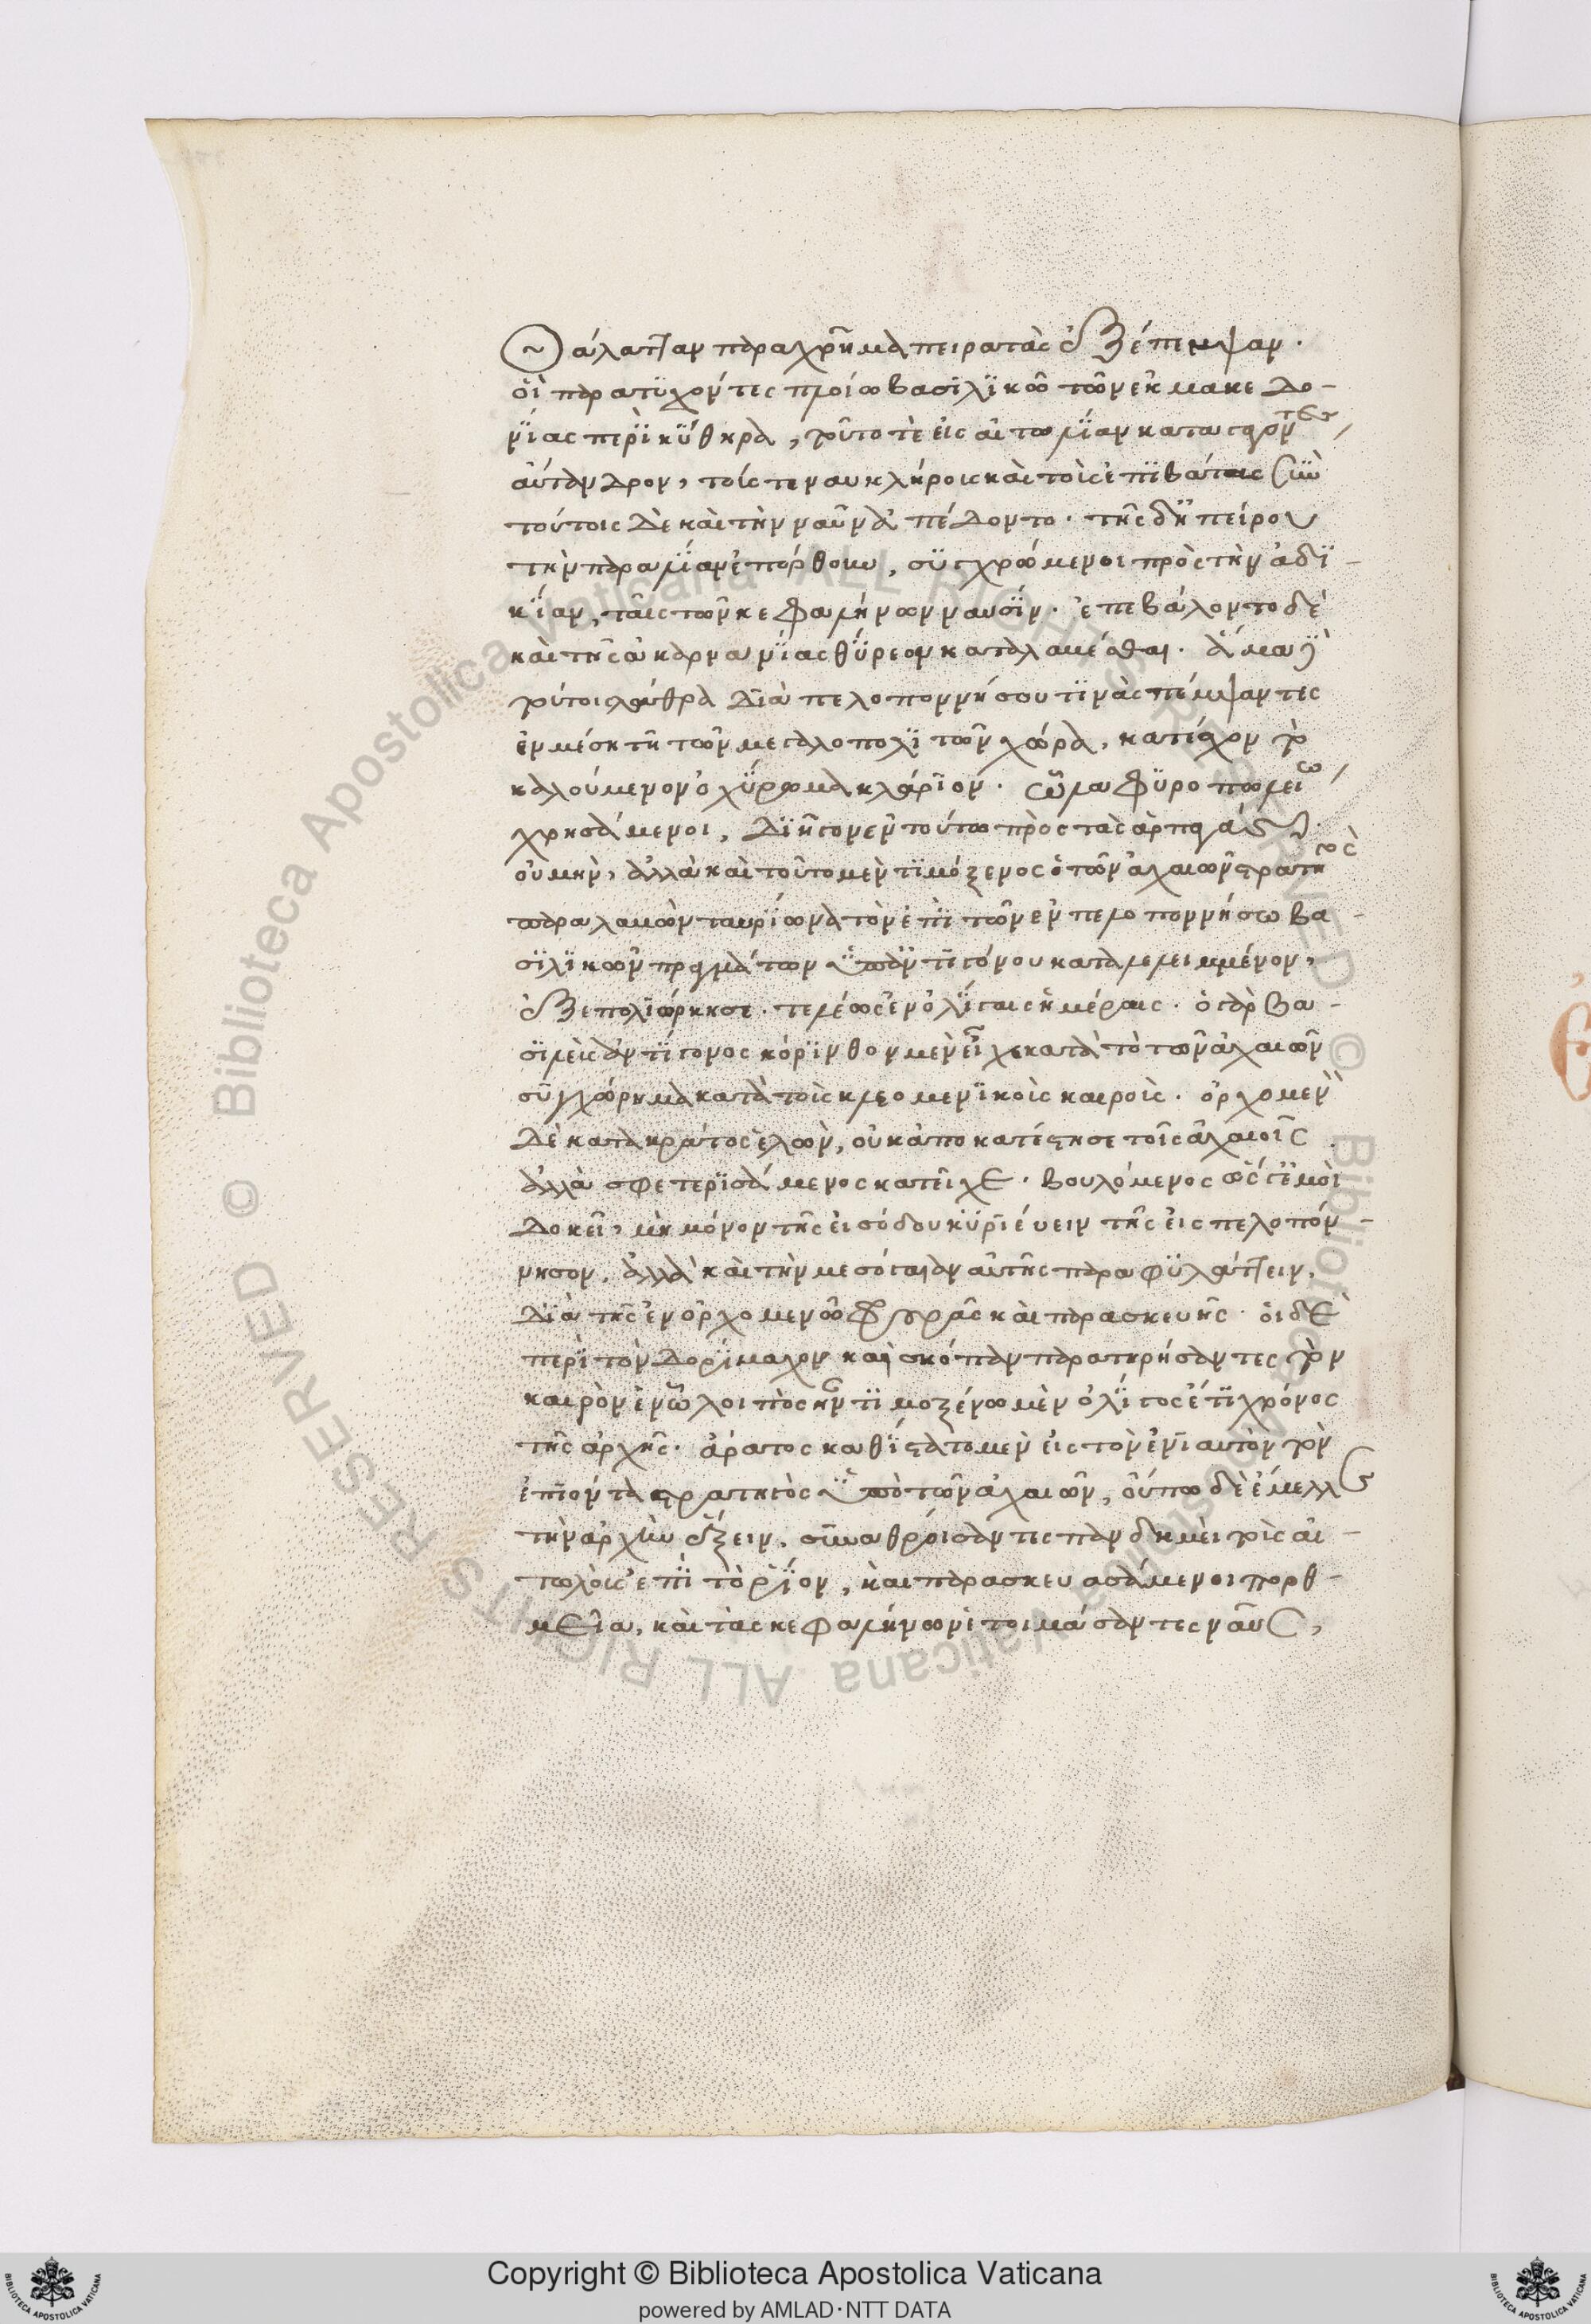 θάλατταν παραχρῆμα πειρατὰς ἐξέπεμψαν.
οἳ παρατυχόντες πλοίω βασιλικῶ τῶν ἐκ μακεδο-
νίας περὶ κύθηρα, τοῦτό τε εἰς αἰτωλίαν καταγαγόντες
αὔτανδρον, τούς τε ναυκλήροις καὶ τοῖς ἐπιβάταις σὺν
τούτοις δὲ καὶ τὴν ναῦν ἀπέδοντο. τῆς δ' ἠπείρου
τὴν παραλίαν ἐπόρθουν, συγχρώμενοι πρὸς τὴν ἀδι-
κίαν, ταῖς τῶν κεφαλήνων ναυσίν. ἐπεβάλοντο δὲ
καὶ τῆς ἀκαρνανίας θύρεον καταλαβέσθαι. ἅμα δὲ
τούτοις λάθρα διὰ πελοποννήσου τινὰς πέμψαντες
ἐν μέση τῆ τῶν μεγαλοπολιτῶν χώρα, κατέσχον τὸ
καλούμενον ὀχύρωμα κλάριον. ὧ λαφυροπωλείω
χρησάμενοι, διῆγον ἐν τούτω πρὸς τὰς ἁρπαγάς.
οὐ μὴν, ἀλλὰ καὶ τοῦτο μὲν τιμόξενος ὁ τῶν ἀχαιῶν στρατηγὸς
παραλαβὼν ταυρίωνα τὸν ἐπὶ τῶν ἐν πελοποννήσω βα-
σιλικῶν πραγμάτων ὑπ' ἀντιγόνου καταλελειμμένον,
ἐξεπολιόρκησε τελέως ἐν ὀλίγαις ἡμέραις. ὁ γὰρ βα-
σιλεὺς ἀντίγονος κόρινθον μὲν εἶχε κατὰ τὸ τῶν ἀχαιῶν
συγχώρημα κατὰ τοῖς κλεομενικοῖς καιροῖς. ὀρχομενὸν
δὲ κατὰ κράτος ἑλὼν, οὐκ ἀποκατέστησε τοῖς ἀχαιοῖς
ἀλλὰ σφετερισάμενος κατεῖχε. βουλόμενος ὥς γ' ἐμοὶ
δοκεῖ, μὴ μόνον τῆς εἰσόδου κυριεύειν τῆς εἰς πελοπόν-
νησον, ἀλλὰ καὶ τὴν μεσόγαιαν αὐτῆς παραφυλάττειν,
διὰ τῆς ἐν ὀρχομενῶ φρουρᾶς καὶ παρασκευῆς. οἱ δὲ
περὶ τὸν δορίμαχον καὶ σκόπαν παρατηρήσαντες τὸν
καιρὸν ἐν ὧ λοιπὸς ἦν τιμοξένω μὲν ὀλίγος ἔτι χρόνος
τῆς ἀρχῆς. ἄρατος καθίστατο μὲν εἰς τὸν ἐνιαυτὸν τὸν
ἐπιόντα στρατηγὸς ὑπὸ τῶν ἀχαιῶν, οὔπω δὲ ἔμελλε
τὴν ἀρχὴν ἕξειν, συναθροίσαντες πανδημεὶ τοὺς αἰ-
τωλοὺς ἐπὶ τὸ ῥίον, καὶ παρασκευασάμενοι πορθ-
μεῖα, καὶ τὰς κεφαλήνων ἑτοιμάσαντες ναῦς,